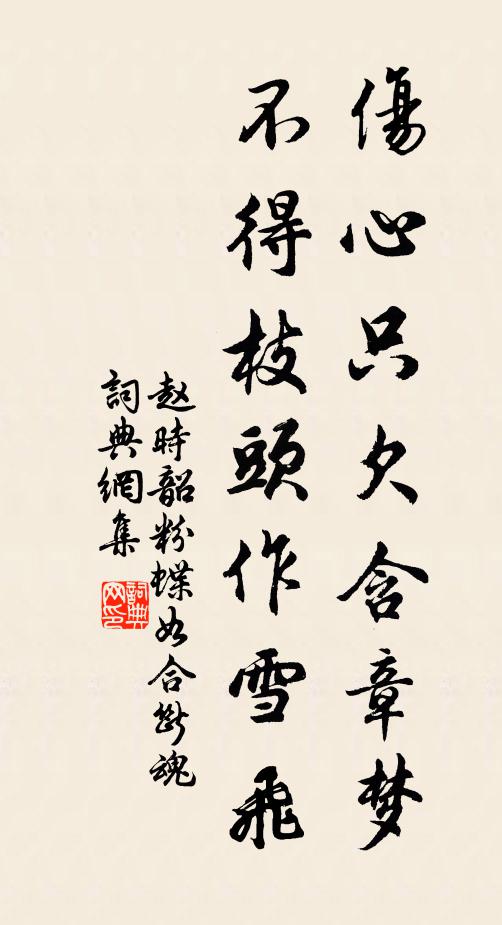 傷心只欠含章梦
不得枝頭作雪飛
赵時韶粉蝶如合斷魂
詞典網集
詞典網印